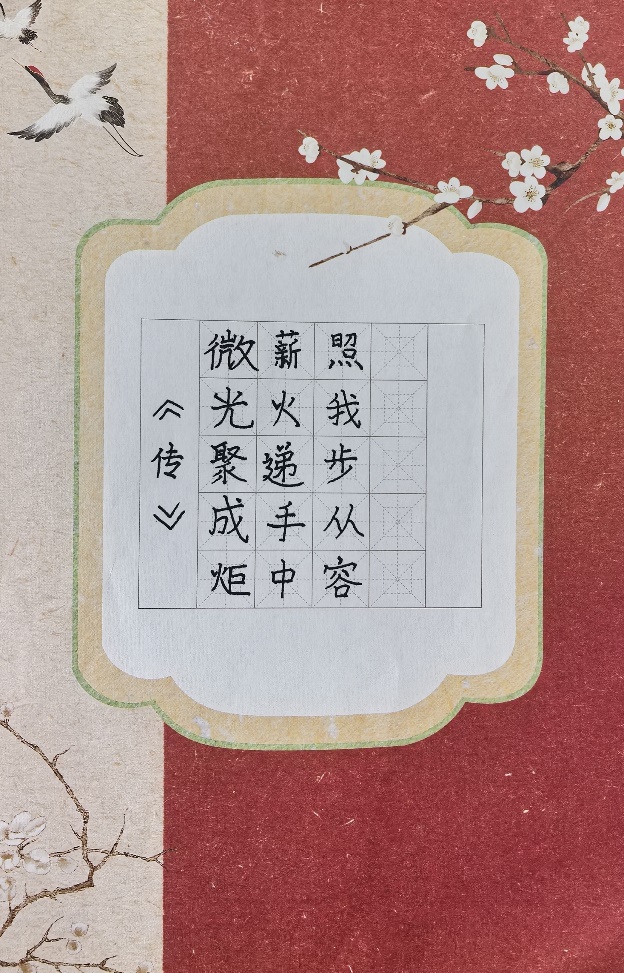 《传》
微光聚成炬
薪火递手中
照我步从容